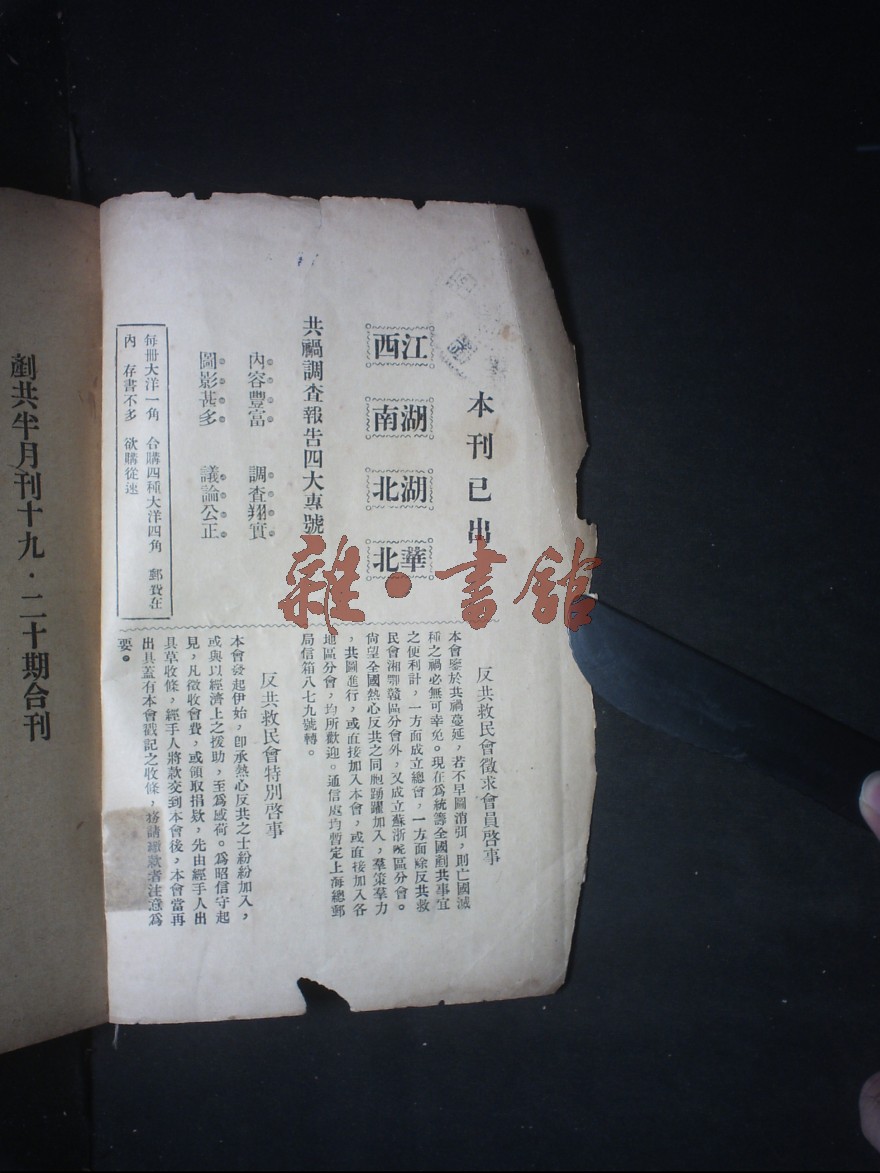 本刊已出
江西
湖南
湖北
華北
共禍調查報告四大專號
內容豐富 調查翔實
圖影甚多 議論公正
每冊大洋一角 合購四種大洋四角 郵費在
內 存書不多 欲購從速
反共救民會徵求會員啓事
本會鑒於共禍蔓延,若不早圖消弭,則亡國滅
種之禍必無可幸免。現在爲統籌全國剷共事宜
之便利計,一方面成立總會,一方面除反共救
民會湘鄂贛區分會外,又成立蘇浙皖區分會。
尙望全國熱心反共之同胞踴躍加入,羣策羣力
,共圖進行,或直接加入本會,或直接加入各
地區分會,均所歡迎。通信處均暫定上海總郵
局信箱八七九號轉。
反共救民會特別啓事
本會發起伊始,卽承熱心反共之士紛紛加入,
或與以經濟上之援助,至爲感荷。爲昭信守起
見,凡徵收會費,或領取捐欵,先由經手人出
具草收條,經手人將款交到本會後,本會當再
出具蓋有本會戳記之收條,務請繳款者注意爲
要。
剷共半月刊十九·二十期合刊
雜·書館